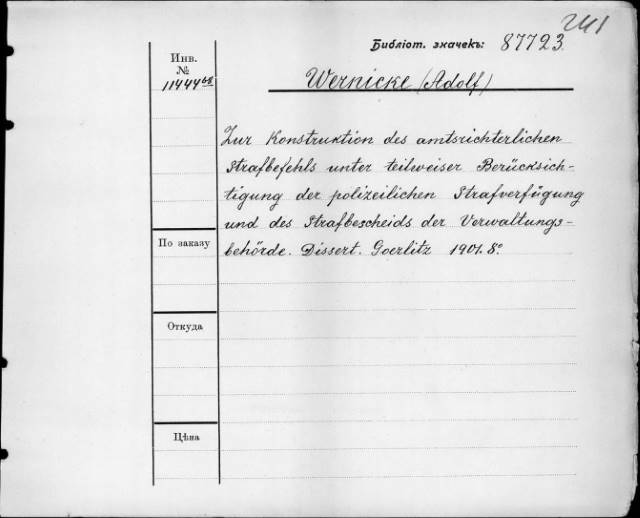 241
Библіот. значекъ: 87723
Инв.
№
11444 68
Wernicke (Adolf)
Zur Konstruktion des amtsrichterlichen
Strafbefehls unter teilweiser Berücksich-
tigung der polizeilichen Strafverfügung
und des Strafbescheids der Verwaltungs-
behörde. Dissert. Goerlitz 1901. 8°
По заказу
Откуда
Цѣна